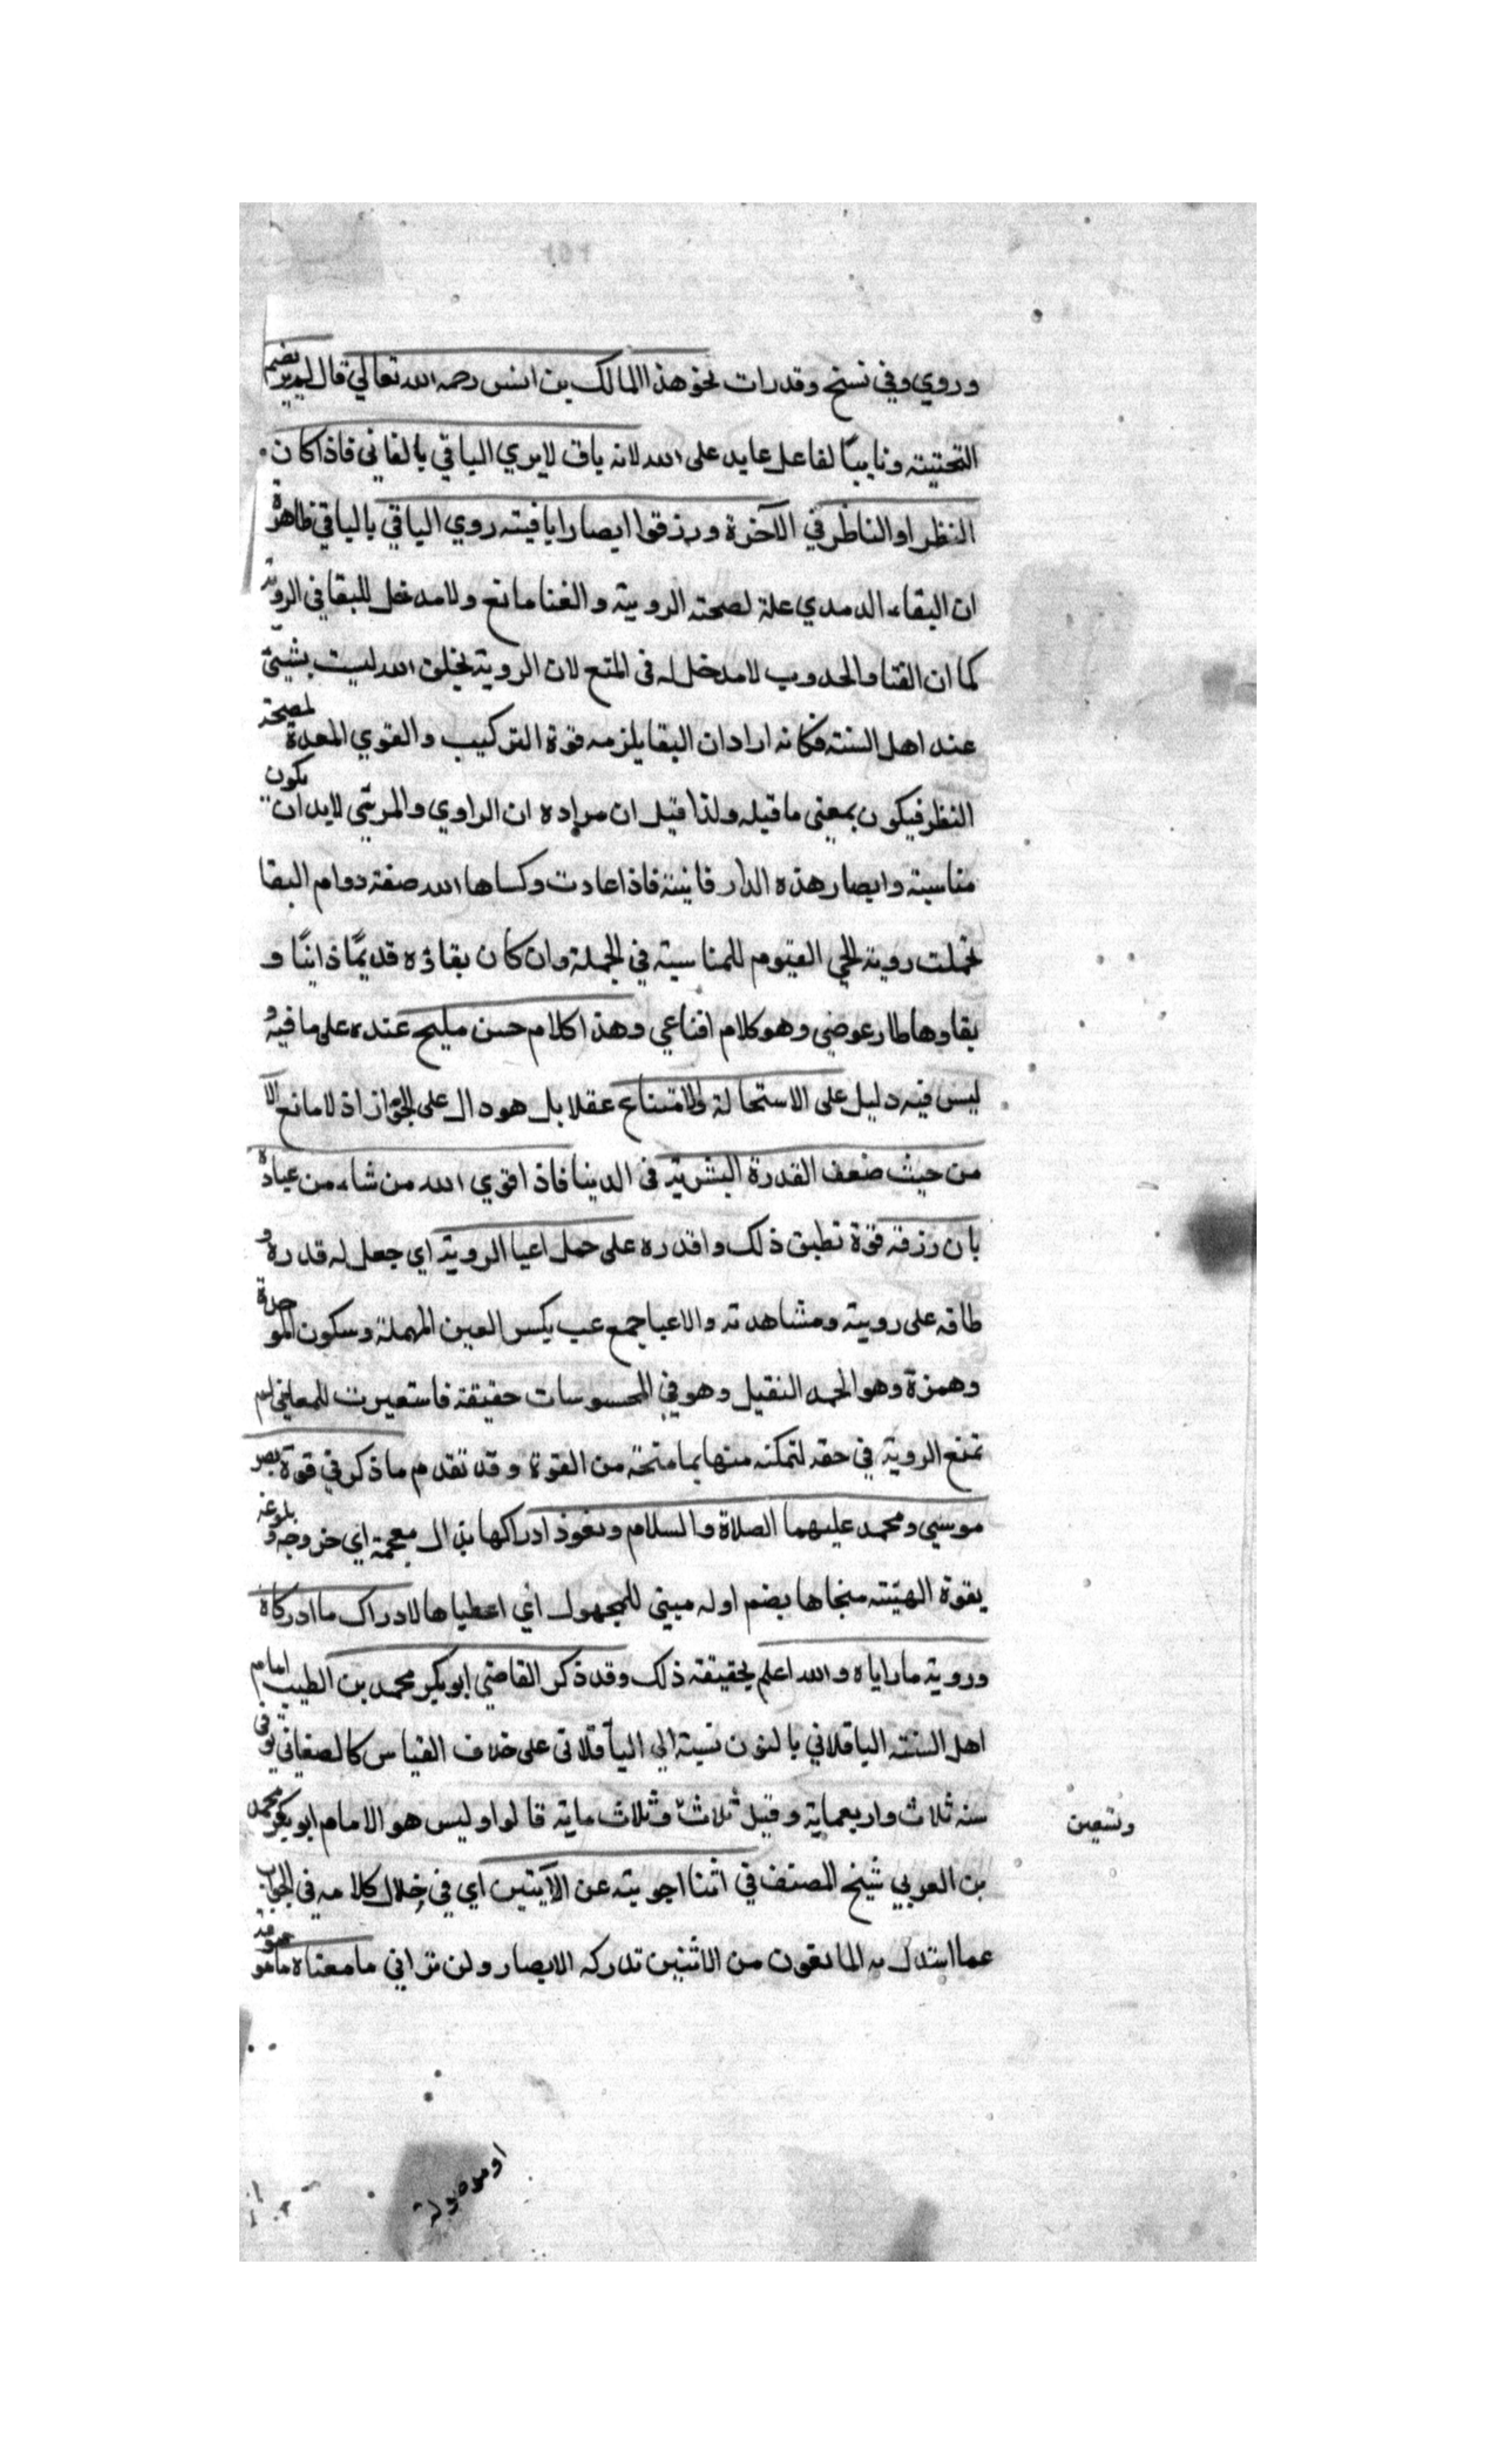 وروي وفي نسخ وقد رات نحو هذا المالك بن انس رحمه الله تعالي قال لم ير بضم
التحتيته ونايبًا لفاعل عايد على الله لانه باق لايري الباقي بالفاني فاذا كان
النظر او الناظر في الآخرة ورزقوا ابصارا باقيته روي الباقي بالباقي ظاهرة
ان البقاء الدمدي علة لصحته الروية والفنا مانع ولا مدخل للبقا في الروية
كما ان الفنا والحدوب لا مدخل له في المتع لان الروية بخلق الله ليست بشيئ
عند اهل السنته فكانه اراد ان البقا يلزمه قوة التركيب والقوي المعدة لصحته
النظر فيكون بمعنى ما قيله ولذا قيل ان مراده ان الراوي والمرئي لابد ان يكون
مناسبته وابصار هذه الدار فانيته فاذا عادت وكساها الله صفة دوام البقا
تحملت روية الحي القيوم للمناسبة في الجملة وان كان بقاؤه قديمًا ذاتيًا و
بقاوها طار عوضي وهو كلام اقناعي وهذا كلام حسن مليح عنده على ما فيه و
ليس فيه دليل على الاستحالة الامتناع عقلا بل هو دال على الجواز اذ لا مانع الا
من حيث ضعف القدرة البشرية في الدينا فاذا قوي الله من شاء من عباده
بان رزقه قوة تطبق ذلك واقدره على حمل اعيا الروية اي جعل له قدره و
طاقه على روية ومشاهدته والاعيا جمع عب بكسر العين المهملة وسكون الموحدة
وهمزة وهو الحمد الثقيل وهو في المحسوسات حقيقة فاستعيرت للمعاني لم
تمنع الروية في حقه لتمكنه منها بما منحته من القوة وقد تقدم ما ذكر في قوة بصر
موسي ومحمد عليهما الصلاة والسلام ونفوذ ادراكها بذال معجمة اي خروجه و بلوغه
بقوة الهيته منحاها بضم اوله مبني للمجهول اي اعطياها لادراك ما ادركاه
وروية ما راياه والله اعلم بحقيقة ذلك وقد ذكر القاضي ابو بكر محمد بن الطيب امام
اهل السنته الباقلاني بالنون نسبة الي الباقلاني على خلاف القياس كالصنعاني توفي
سنه ثلاث واربعماية وقيل ثلاث وثلاث ماية قالوا وليس هو الامام ابو بكر محمد
وتسعين
بن العربي شيخ المصنف في اثنا اجويته عن الآيتين اي في خلال كلامه في الجواب
عما استدل به المانعون من الاثنين تدركه الابصار ولن تراني ما معناه ما موصوفه
او موصولة